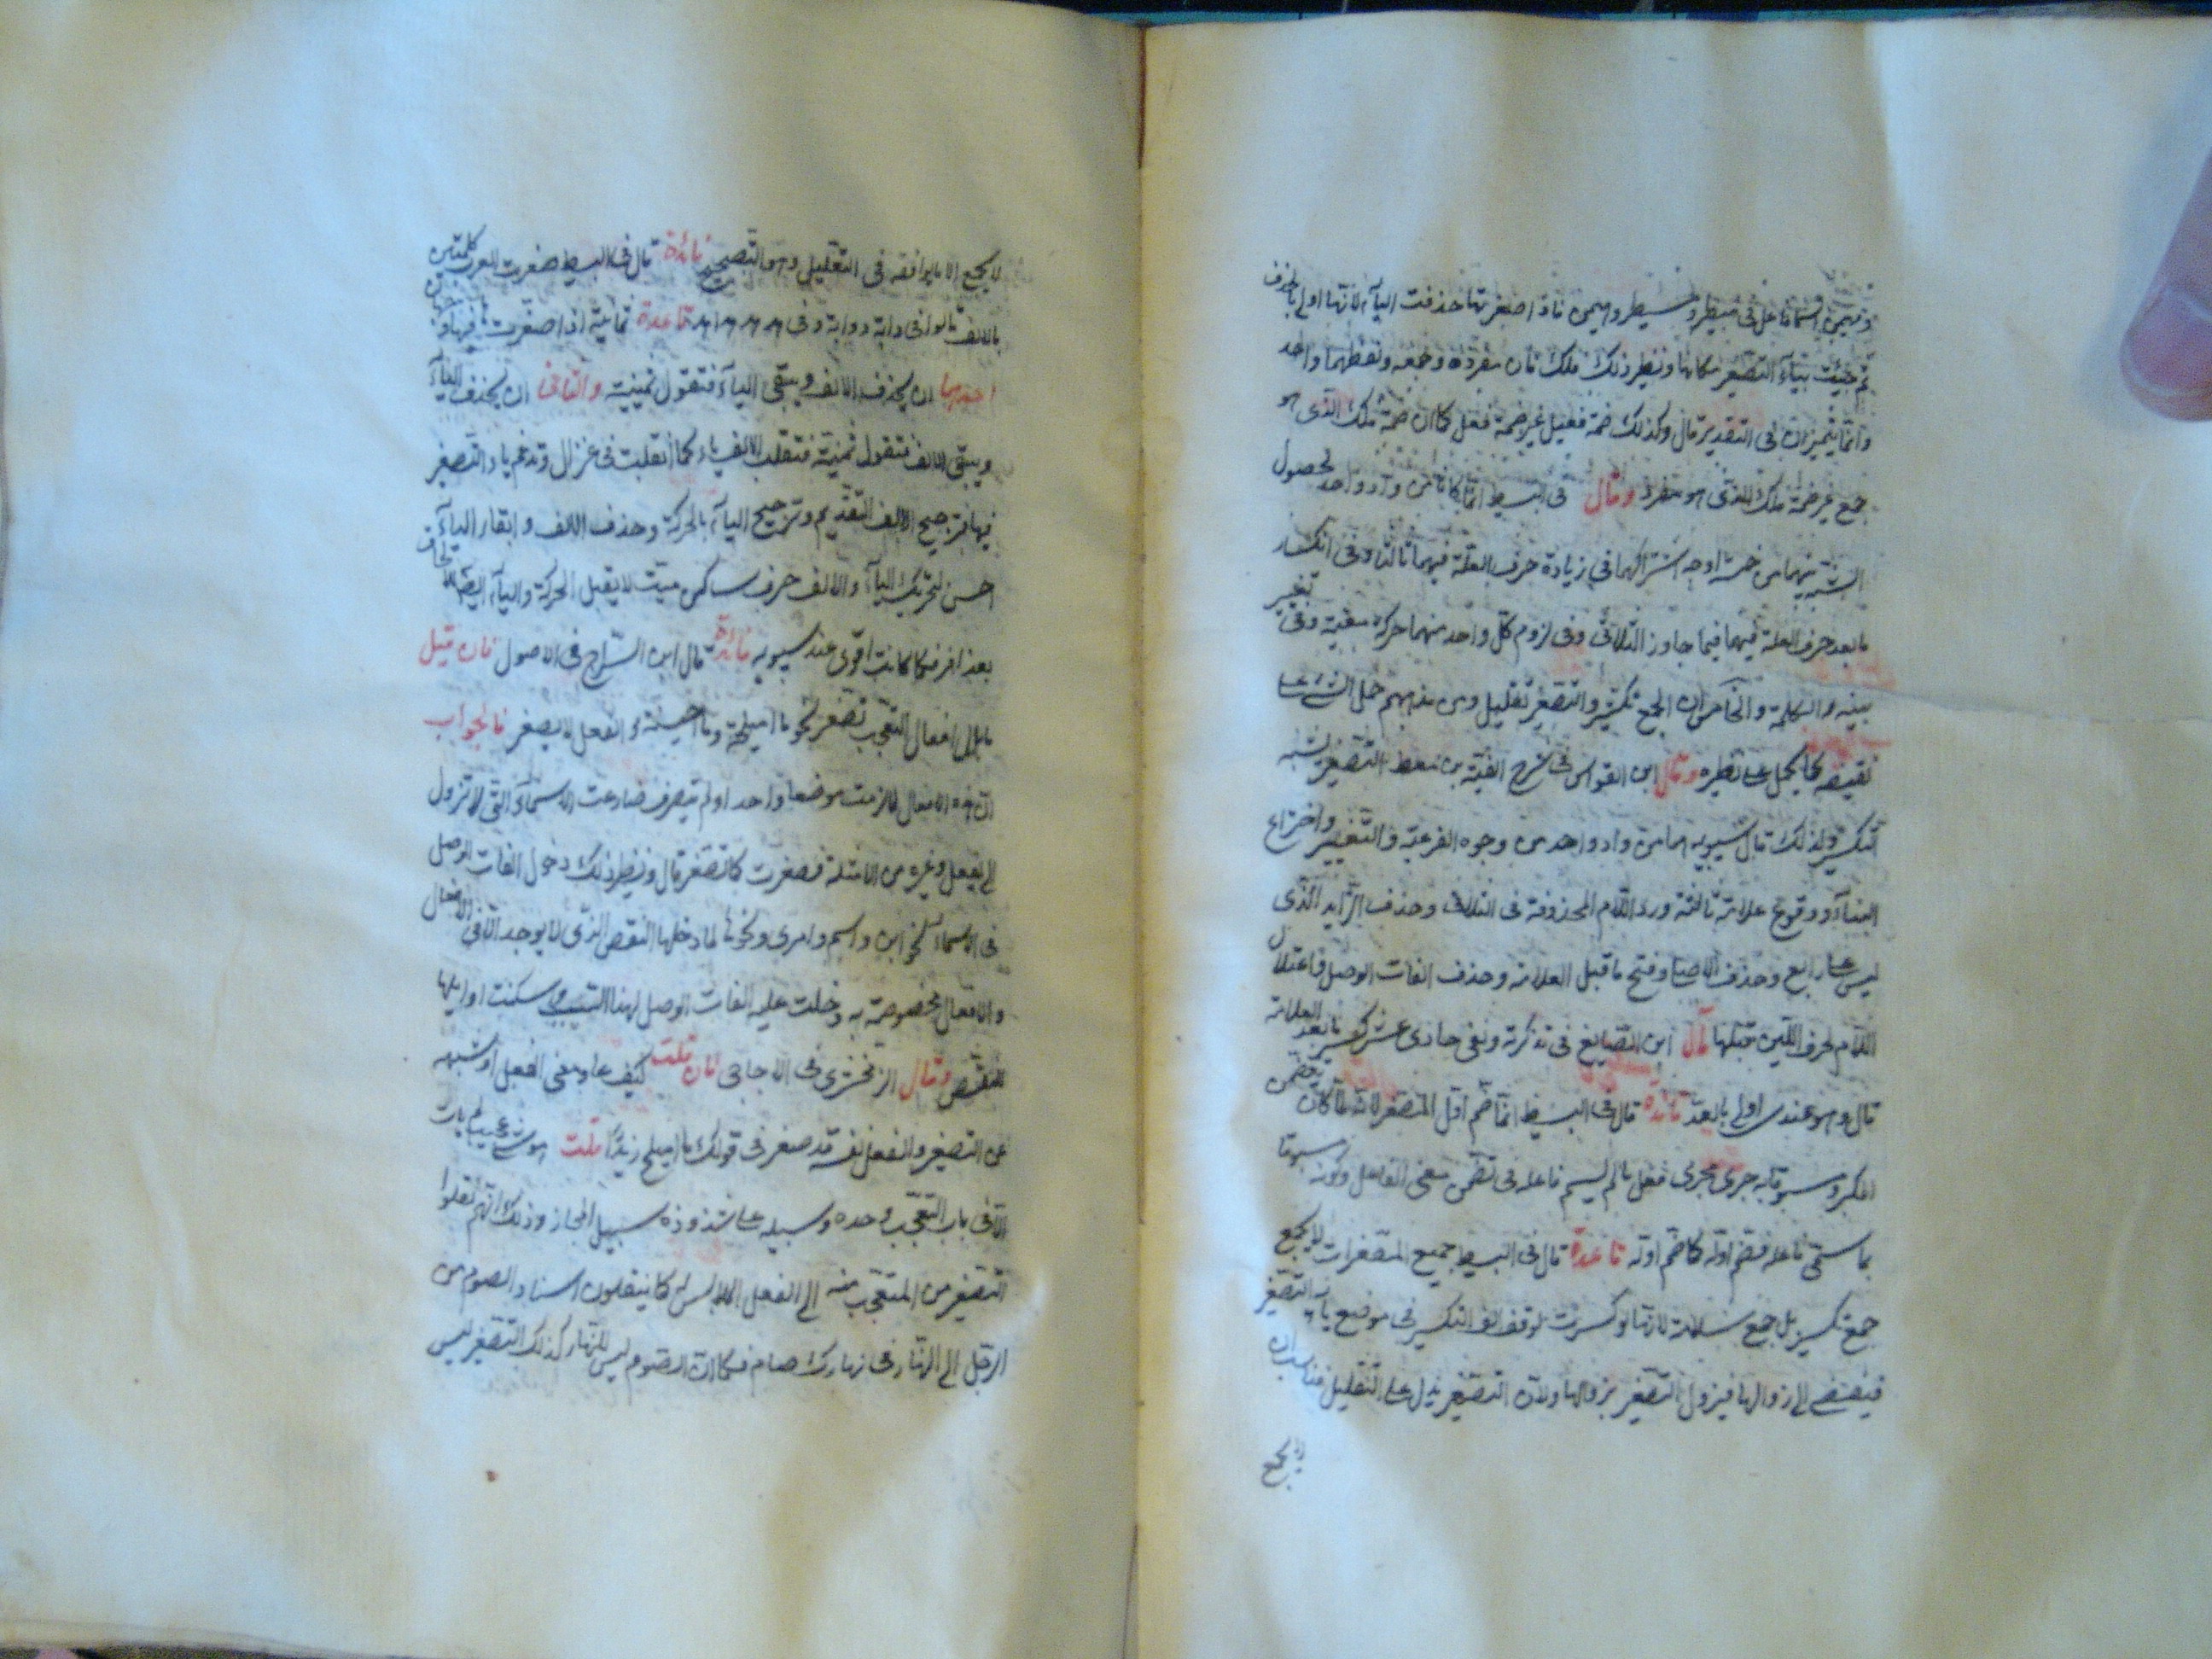 ومهيمن اسما فاعل من مبيطر ومسيطر ومهيمن فاذا صغرتها حذفت الياء لانها اولى بالحذف
ثم جيئت بياء التصغير مكانها ونظير ذلك فلك فان مفرده وجمعه ولفظهما واحد
وانما يتميزان فى التقدير قال وكذلك ضمة فعيل غير ضمة فعل كما ان ضمة فلك الذى هو
جمع غير ضمة فلك الذى هو مفرد وقال فى البسيط انما كانا من واد واحد لحصول
الشبه بينهما من خمسة اوجه اشتراكهما فى زيادة حرف العلة فيهما ثالثا وفى انكسار
ما بعد حرف العلة فيهما فيما جاوز الثلاثى وفى لزوم كل واحد منهما حركة معينة وفى تغيير
بنية الكلمة والخامس ان الجمع تكثير والتصغير تقليل ومن مذهبهم حمل الشئ على
نقيضه كما يحمل على نظيره وقال ابن القواس فى شرح الفية بن معط التصغير يشبه
التكسير ولذلك قال سيبويه هما من واد واحد من وجوه الفرعية والتغيير واختراع
البناء ووقوع علامته ثالثة ورد اللام المحذوفة فى الثلاثى وحذف الزايد الذى
ليس على رابع وحذف الاصل وفتح ما قبل العلامة وحذف الفات الوصل واعتلال
اللام لحرف اللين قبلها قال ابن الصايغ فى تذكرته وبقى حادى عشر كسر ما بعد العلامة
قال وهو عندى اولى بالعد فائدة قال فى البسيط انما ضم اول المصغر لانه لما كان يتضمن
المكبر ومسبوقا به جرى مجرى فعل ما لم يسم فاعله فى تضمن معنى الفاعل وكونه مسبوقا
بما سمى فاعله فضم اوله كما ضم اوله قاعدة قال فى البسيط جميع المصغرات لا يجمع
جمع تكسير بل جمع سلامة لانها لو كسرت لوقف الف التكسير فى موضع ياء التصغير
فيفضى الى زوالها فيزول التصغير بزوالها ولان التصغير يدل على التقليل فناسب ان
لا يجمع
لا يجمع الا ما يوافقه فى التقليل وهو التصحيح فائدة قال فى البسيط صغرت العرب كلمتين
بالالف قالوا فى دابة دوابة وفى هدهد هداهد قاعدة ثمانية اذا صغرت ففيها وجهان
احدهما ان يحذف الالف ويبقى الياء فتقول ثمينية والثانى ان يحذف الياء
ويبقى الالف فتقول ثمينة فتقلب الالف ياء كما انقلبت فى غزال وتدغم ياء التصغير
فيها فترجيح الالف التقديم وترجيح الياء بالحركة وحذف الالف وابقاء الياء
احسن لتحريك الياء والالف حرف ساكن ميت لا يقبل الحركة والياء ايضا للالحاق
بعذافر فكانت اقوى عند سيبويه فائدة قال ابن السراج فى الاصول فان قيل
ما بال افعال التعجب تصغر نحو ما اميلحه وما احيسنه والفعل لا يصغر فالجواب
ان هذه الافعال لما لزمت موضعا واحدا ولم تتصرف ضارعت الاسماء التى لا تزول
الى يفعل وغيره من الامثلة فصغرت كما تصغر قال ونظير ذلك دخول الفات الوصل
فى الاسماء نحو ابن واسم وامرى ونحوها لما دخلها النقص الذى لا يوجد الا فى الافعال
والافعال مخصوصة به دخلت عليه الفات الوصل لهذا السبب وسكنت اوايلها
للنقص وقال الزمخشرى فى الاحاجى فان قلت كيف عاد معنى الفعل او شبهه
عن التصغير والفعل نفسه قد صغر فى قولك ما اميلح زيدا قلت هو شئ عجيب لم يأت
الا فى باب التعجب وحده وسبيله على شذوذه سبيل المجاز وذلك انهم نقلوا
التصغير من المتعجب منه الى الفعل الملابس له كما ينقلون اسناد الصوم من
الرجل الى النهار فى نهارك صام فكما ان الصوم ليس للنهار كذلك التصغير ليس